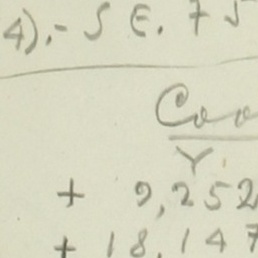 4).- S E. 75
Coo
Y
+ 9,252
+ 18,147